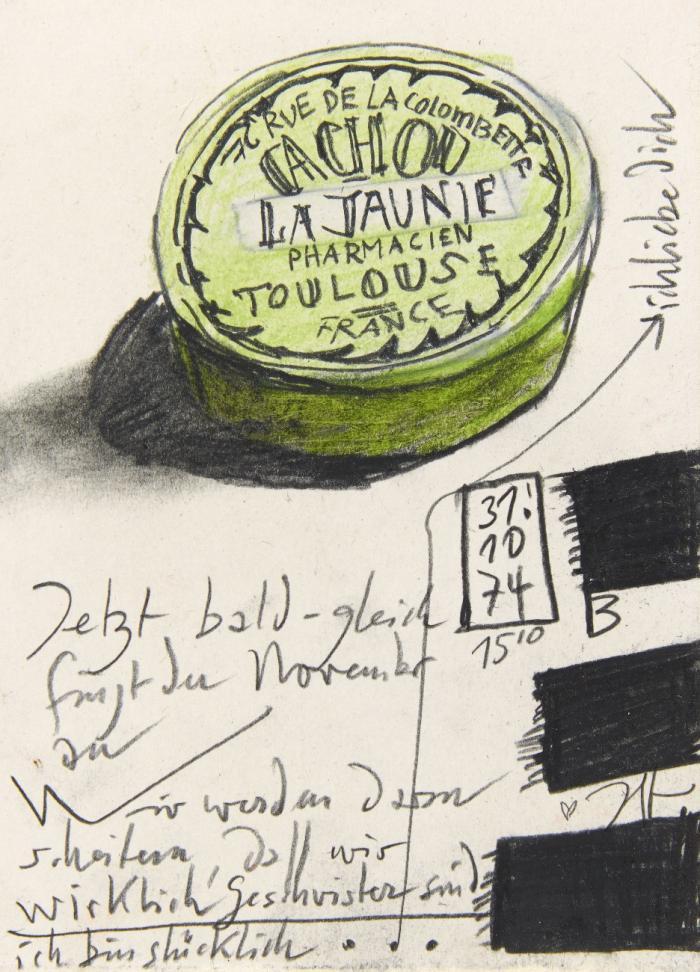 76 RUE DE LA COLOMBETTE
CACHOU
LAJAUNIE
PHARMACIEN
TOULOUSE
FRANCE
ich liebe Dich
31!
10
74
15¹⁰
B
Jetzt bald-gleich
fängt der November
an
Wir werden daran
scheitern, daß wir
wirklich Geschwister sind
ich bin glücklich . . .